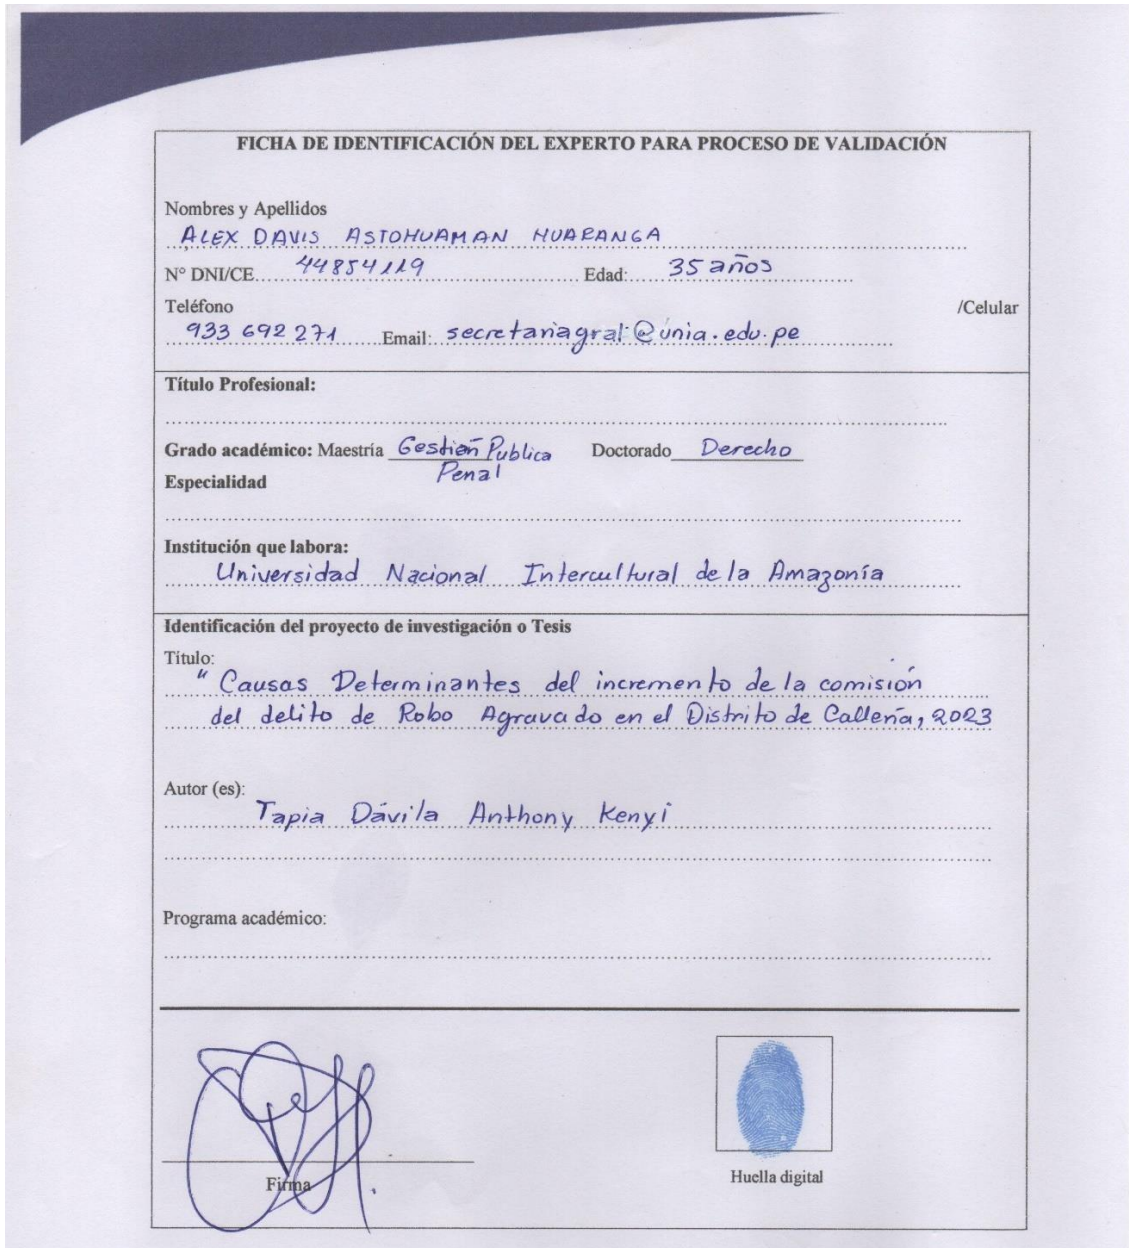 FICHA DE IDENTIFICACIÓN DEL EXPERTO PARA PROCESO DE VALIDACIÓN
Nombres y Apellidos
ALEX DAVIS ASTOHUAMAN HUARANGA
N° DNI/CE 44854119 Edad: 35 años
Teléfono /Celular
933 692 271 Email: secretariagral@unia.edu.pe
Título Profesional:
Grado académico: Maestría Gestión Publica Doctorado Derecho
Penal
Especialidad
Institución que labora:
Universidad Nacional Intercultural de la Amazonía
Identificación del proyecto de investigación o Tesis
Título:
" Causas Determinantes del incremento de la comisión
del delito de Robo Agravado en el Distrito de Callería, 2023
Autor (es):
Tapia Dávila Anthony Kenyi
Programa académico:
Firma
Huella digital